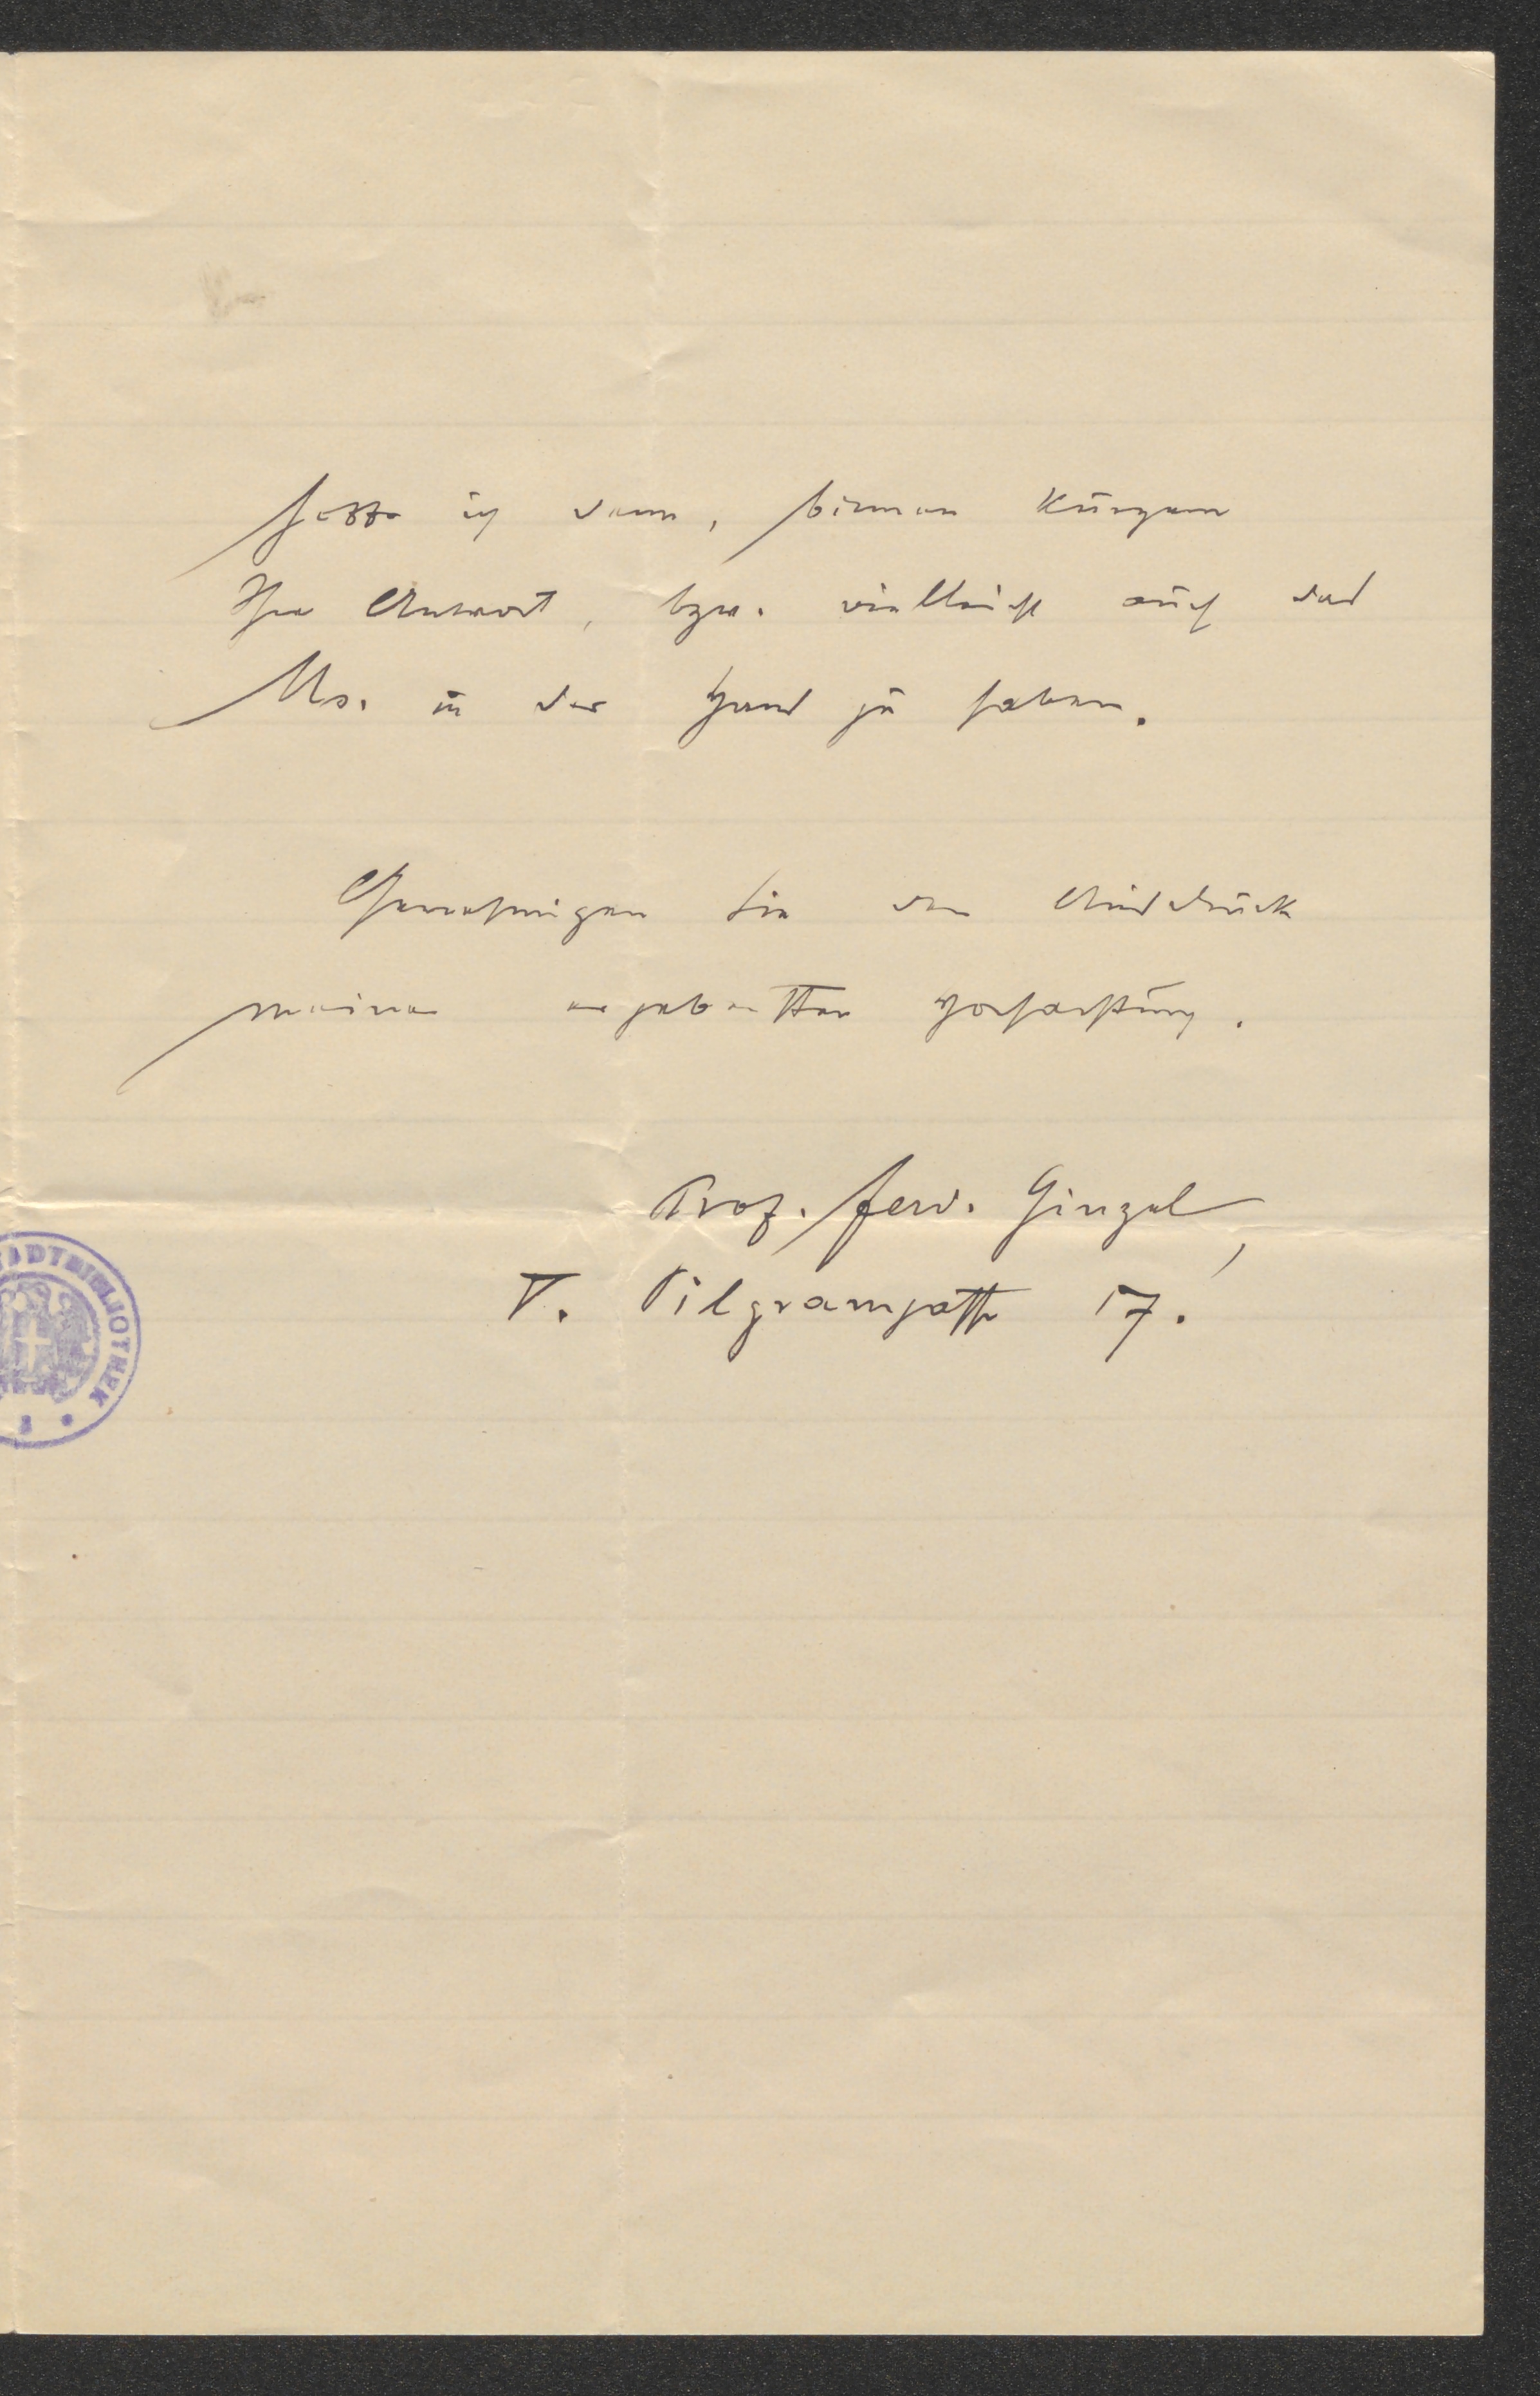 hoffe ich dann, binnen kurzem
Ihre Antwort, bzw. vielleicht auch das
Ms. in der Hand zu haben.
Genehmigen Sie den Ausdruck
meiner ergebensten Hochachtung.
Prof. Ferd. Ginzel,
V. Pilgramgasse 17.
STADTBIBLIOTHEK